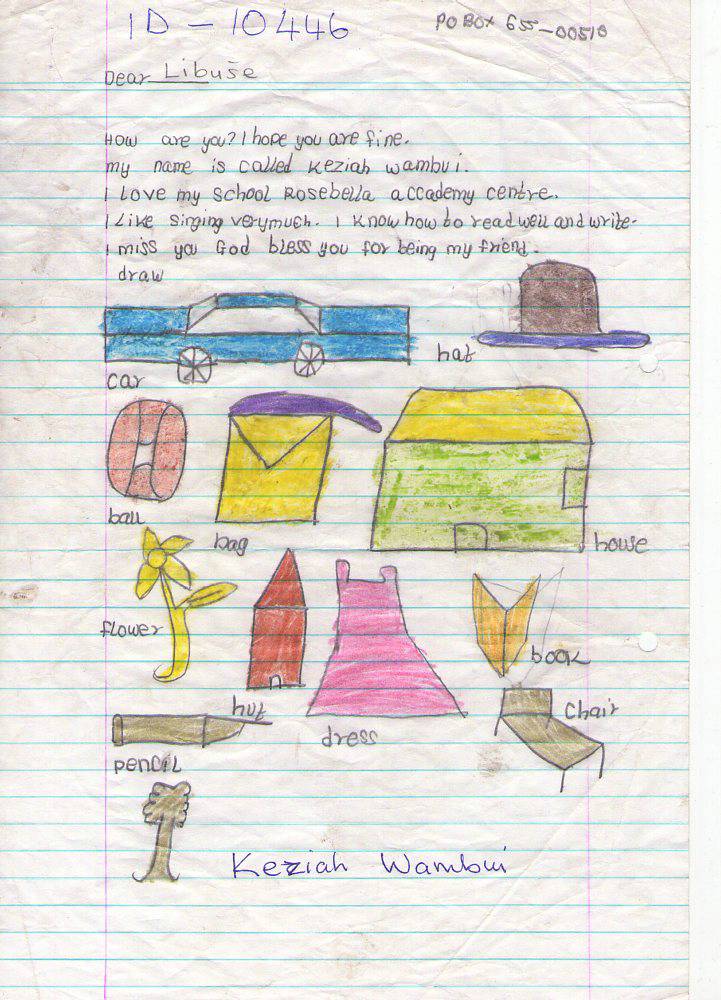 ID - 10446
PO BOX 655-00510
Dear Libuše
How are you? I hope you are fine.
my name is called Keziah wambui.
I Love my School Rosebella accademy centre.
I Like Singing verymuch. I Know how to read well and write.
I miss you God bless you for being my friend.
draw
hat
car
ball
bag
house
flower
book
hut
chair
dress
pencil
Keziah Wambui